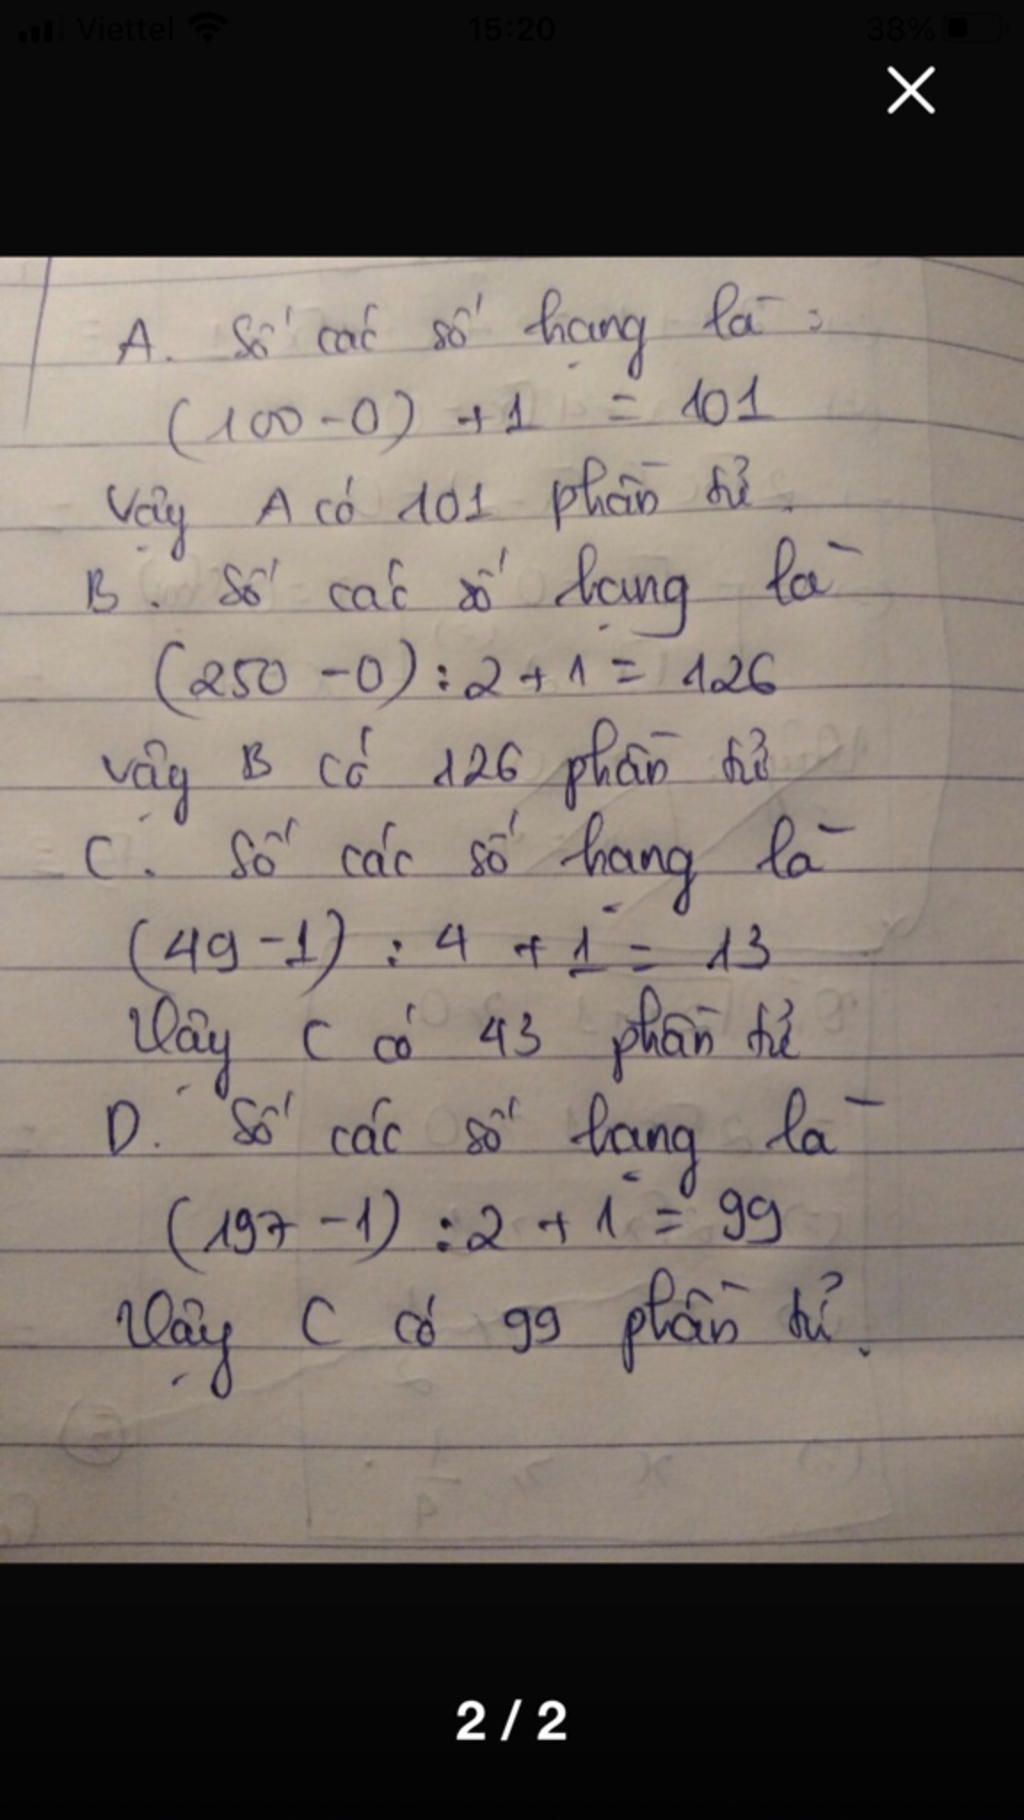 Viettel 15:20 38%
A. Số các số hạng là :
(100-0) +1 = 101
Vậy A có 101 phần tử.
B. Số các số hạng là
(250-0):2+1= 126
vậy B có 126 phần tử
C. Số các số hạng là
(49-1) : 4 + 1 = 13
Vậy C có 43 phần tử
D. Số các số hạng là
(197-1) :2 + 1 = 99
Vậy C có 99 phần tử.
2 / 2